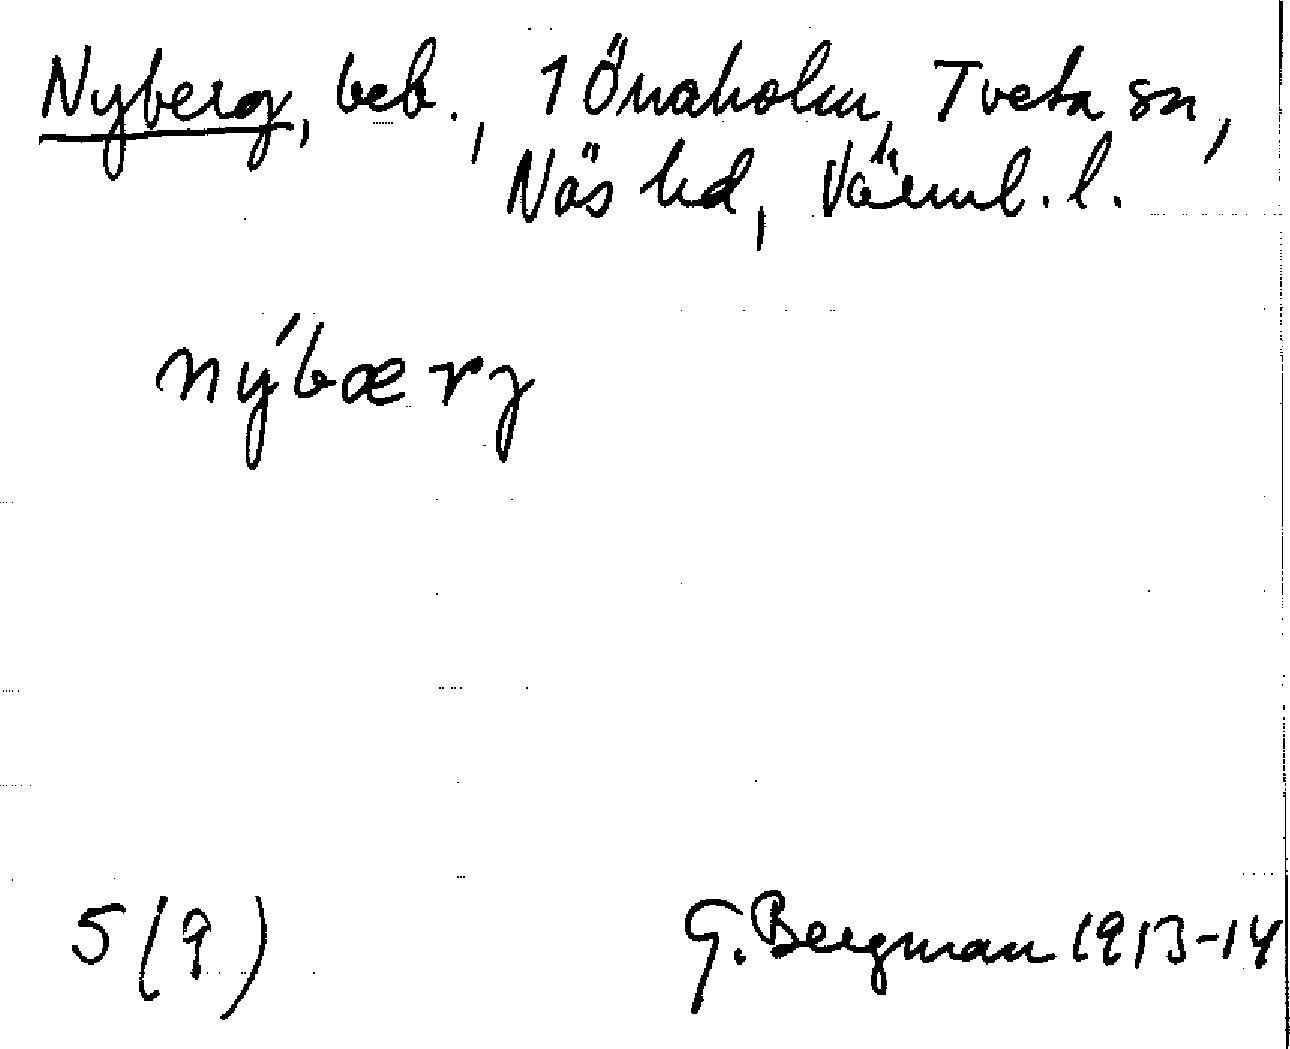 Nyberg, beb., 1 Önaholm, Tveta sn,
Näs hd, Värml. l.
nýbærȷ
5 (9) G. Bergman 1913-14